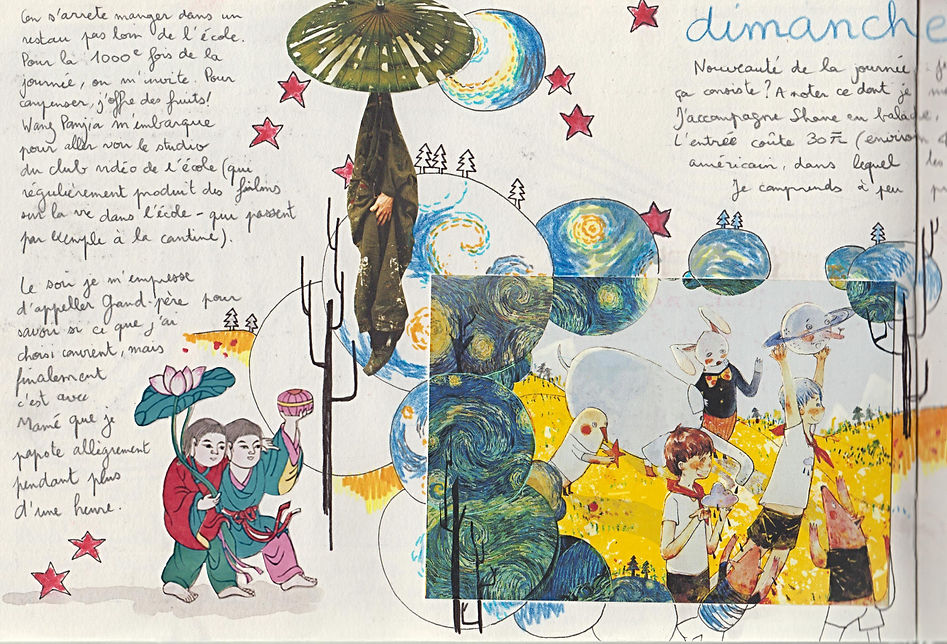 On s'arrete manger dans un
restau pas loin de l'école.
Pour la 1000e fois de la
journée, on m'invite. Pour
compenser, j'offre des fruits!
Wang Panjia m'embarque
pour aller voir le studio
du club vidéo de l'école (qui
régulièrement produit des films
sur la vie dans l'école - qui passent
par exemple à la cantine).
Le soir je m'empresse
d'appeller Grand-père pour
savoir si ce que j'ai
choisi convient, mais
finalement
c'est avec
Mamé que je
papote allègrement
pendant plus
d'une heure.
dimanche
Nouveauté de la journée
ça consiste? A noter ce dont je
J'accompagne Shane en balade,
L'entrée coûte 30元 (environ
américain, dans lequel
Je comprends à peu